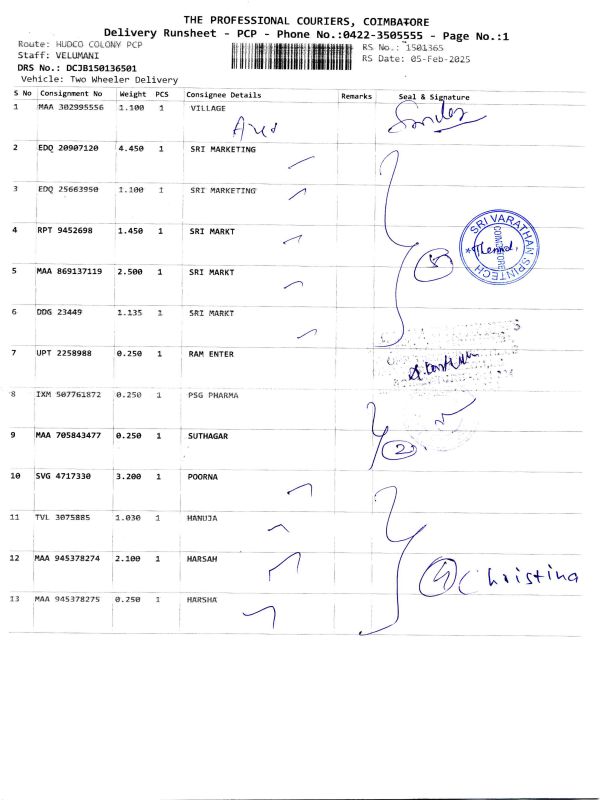 THE PROFESSIONAL COURIERS, COIMBATORE
Delivery Runsheet - PCP - Phone No.:0422-3505555 - Page No.:1
Route: HUDCO COLONY PCP
RS No.: 1501365
Staff: VELUMANI
RS Date: 05-Feb-2025
DRS No.: DCJB150136501
Vehicle: Two Wheeler Delivery
S No Consignment No Weight PCS Consignee Details Remarks Seal & Signature
1 MAA 302995556 1.100 1 VILLAGE
2 EDQ 20907120 4.450 1 SRI MARKETING
3 EDQ 25663950 1.100 1 SRI MARKETING
4 RPT 9452698 1.450 1 SRI MARKT
SRI VARATHAN SPINTECH
COIMBATORE
5
5 MAA 869137119 2.500 1 SRI MARKT
6 DDG 23449 1.135 1 SRI MARKT
7 UPT 2258988 0.250 1 RAM ENTER
8 IXM 507761872 0.250 1 PSG PHARMA
9 MAA 705843477 0.250 1 SUTHAGAR
2
10 SVG 4717330 3.200 1 POORNA
11 TVL 3075885 1.030 1 HANUJA
12 MAA 945378274 2.100 1 HARSAH
4 Christina
13 MAA 945378275 0.250 1 HARSHA